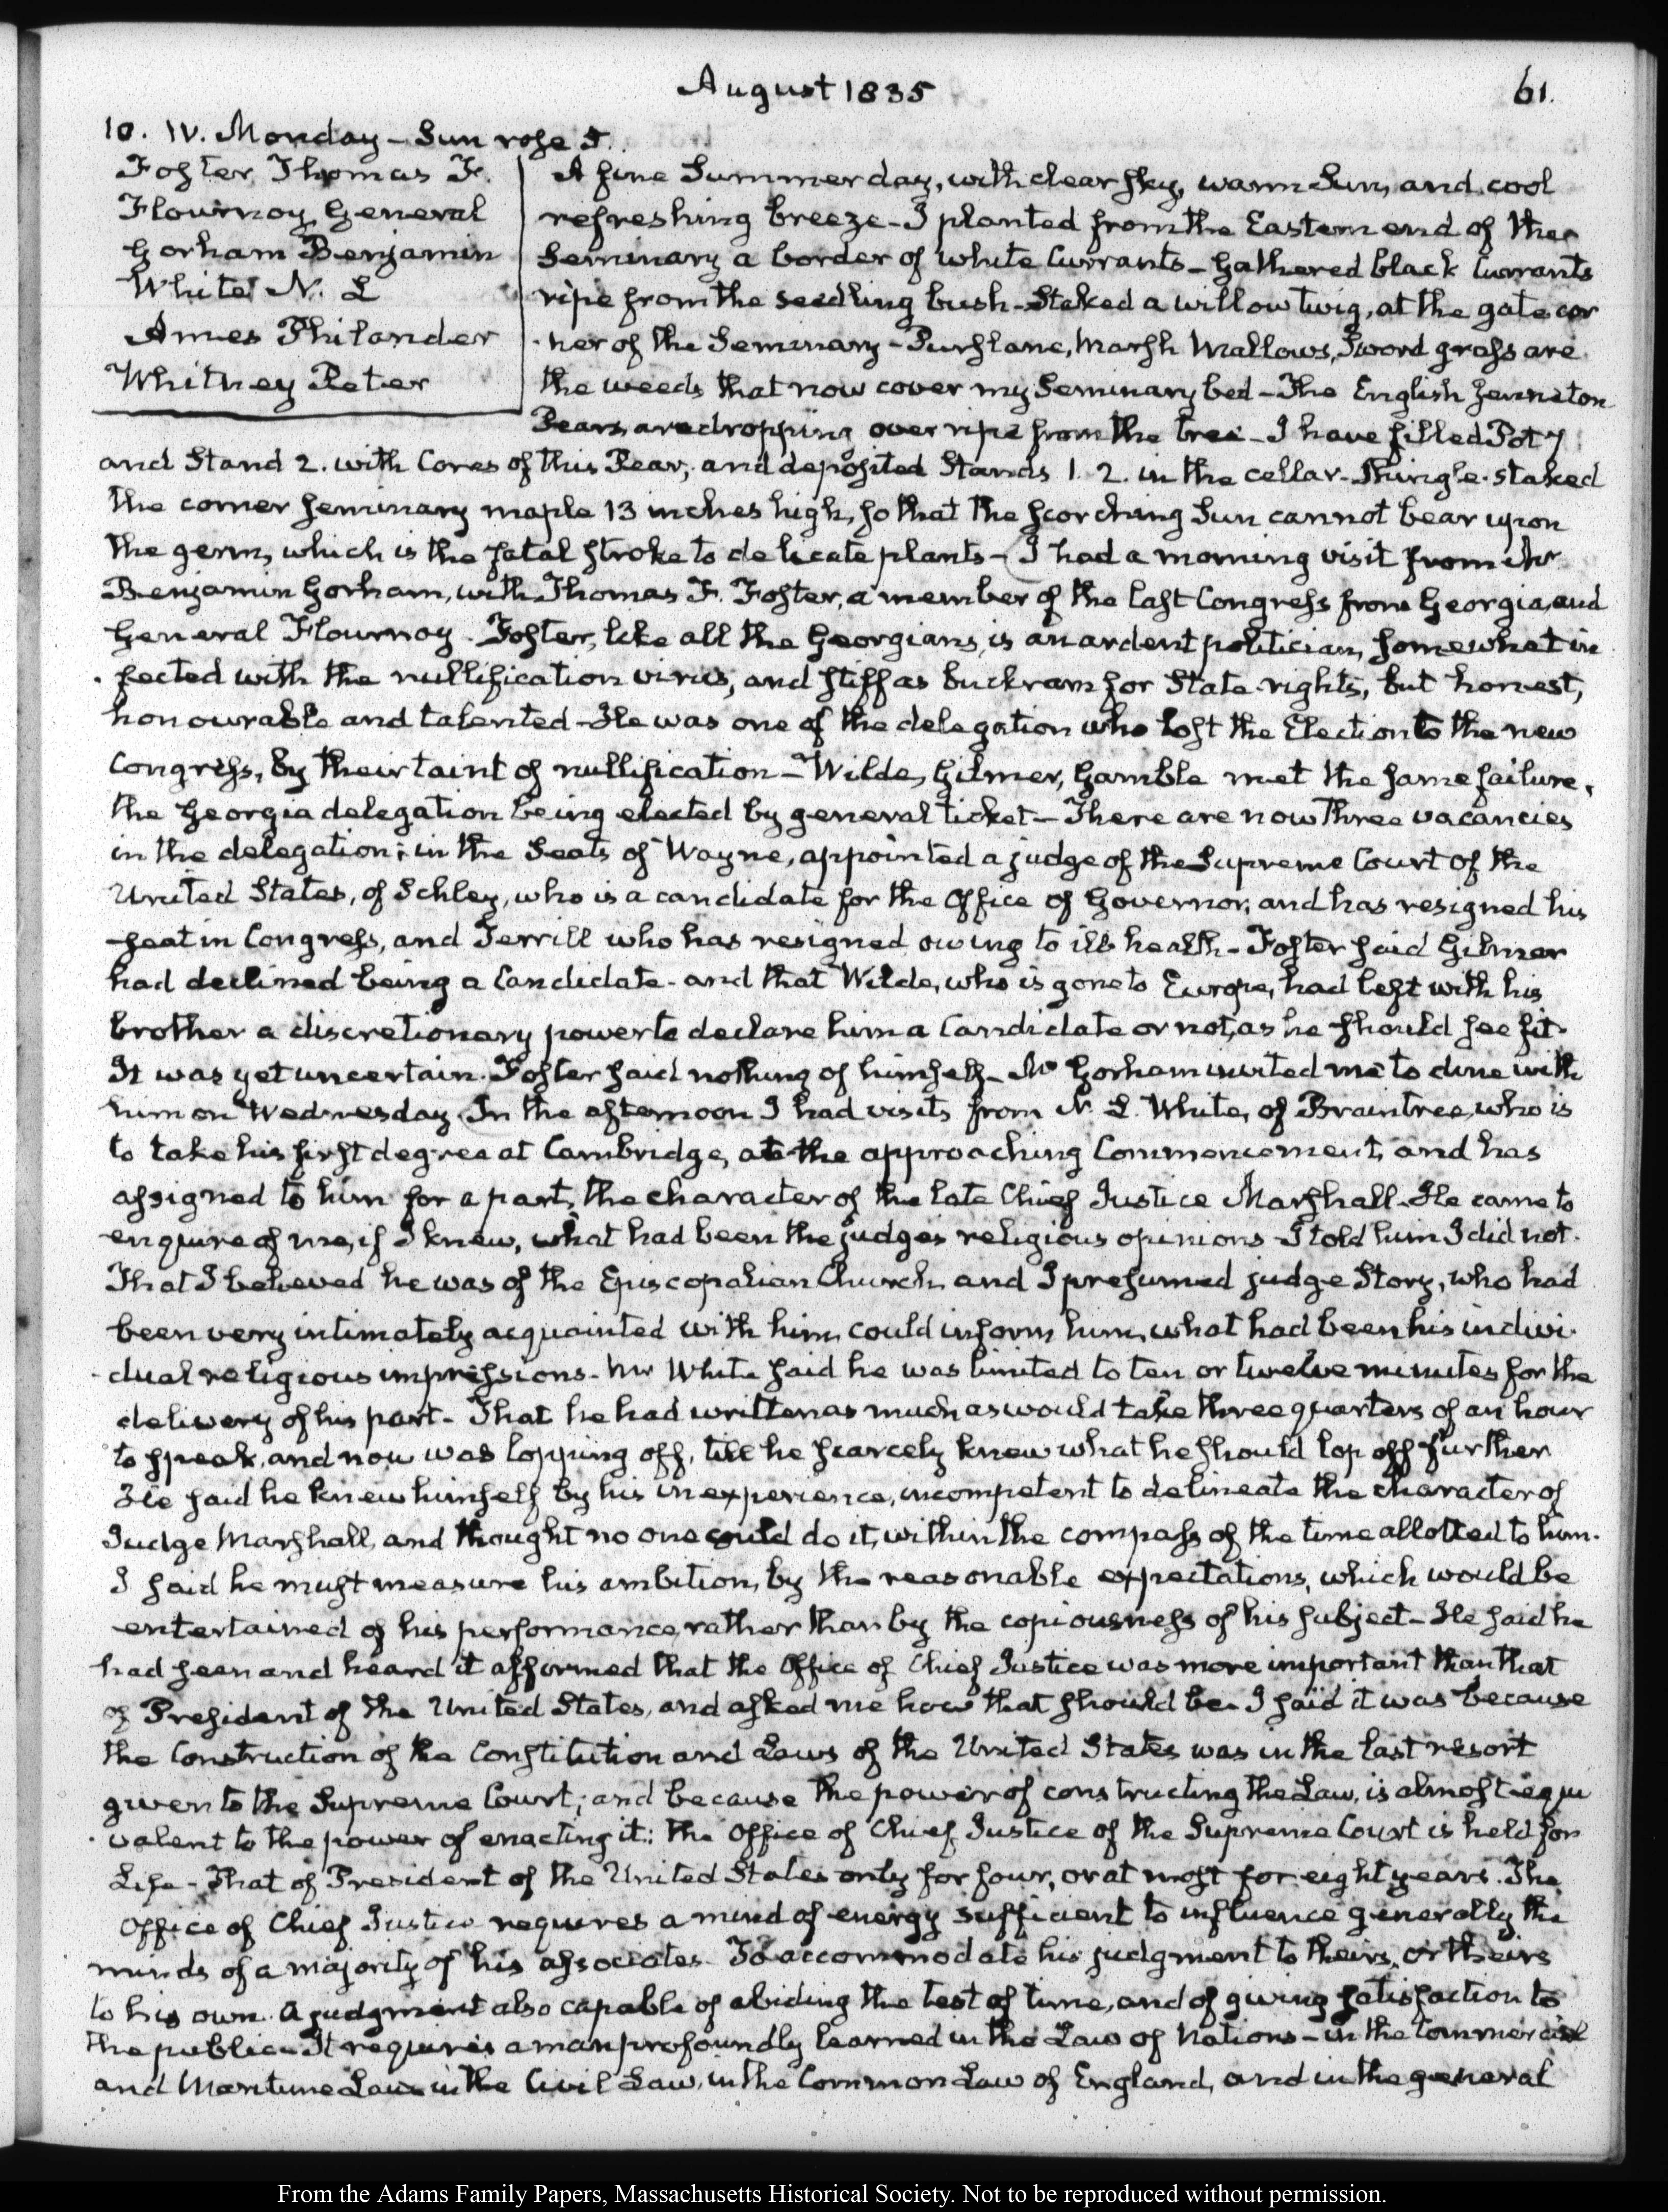 August 1835
61.
10. IV. Monday – Sun rose 5..
Foster Thomas F.
Flournoy General
Gorham Benjamin
White N. L
Ames Philander
Whitney Peter
A fine Summer day, with clear sky, warm Sun, and cool
refreshing breeze – I planted from the Eastern end of the
Seminary a border of white Currants – Gathered black Currants
ripe from the seedling bush – Staked a willow twig, at the gate cor
·ner of the Seminary – Purslane, Marsh Mallows, Sword grass are
the weeds that now cover my Seminary bed – The English
Pears are dropping over ripe from the tree – I have filled Pot 7
and Stand 2. with Cores of this Pear, and deposited Stands 1. 2. in the cellar – Shingle-staked
the corner seminary maple 13 inches high, so that the scorching Sun cannot bear upon
the germ, which is the fatal stroke to delicate plants – I had a morning visit from Mr
Benjamin Gorham, with Thomas F. Foster, a member of the last Congress from Georgia, and
General Flournoy. Foster, like all the Georgians, is an ardent politician, somewhat in
·fected with the nullification virus, and stiff as buckram for State-rights, but honest,
honourable and talented – He was one of the delegation who lost the Election to the new
Congress, by their taint of nullification – Wilde, Gilmer, Gamble met the same failure,
the Georgia delegation being elected by general ticket – There are now three vacancies
in the delegation; in the Seats of Wayne, appointed a judge of the Supreme Court of the
United States, of Schley, who is a candidate for the Office of Governor, and has resigned his
seat in Congress, and Terrill who has resigned owing to ill health – Foster said Gilmer
had declined being a Candidate – and that Wilde, who is gone to Europe, had left with his
brother a discretionary power to declare him a Candidate or not, as he should see fit.
It was yet uncertain. Foster said nothing of himself – Mr Gorham invited me to dine with
him on Wednesday. In the afternoon I had visits from N. L. White, of Braintree, who is
to take his first degree at Cambridge, at the approaching Commencement, and has
assigned to him for a part, the character of the late Chief Justice Marshall. He came to
enquire of me, if I knew, what had been the judges religious opinions – I told him I did not.
That I believed he was of the Episcopalian Church and I presumed judge Story, who had
been very intimately acquainted with him, could inform him, what had been his indivi·
·dual religious impressions – Mr White said he was limited to ten or twelve minutes for the
delivery of his part – That he had written as much as would take three quarters of an hour
to speak, and now was lopping off, till he scarcely knew what he should lop off further
He said he knew himself by his inexperience, incompetent to delineate the character of
Judge Marshall, and thought no one could do it, within the compass of the time allotted to him.
I said he must measure his ambition, by the reasonable expectations, which would be
entertained of his performance rather than by the copiousness of his subject – He said he
had seen and heard it affirmed that the Office of Chief Justice was more important than that
of President of the United States, and asked me how that should be. I said it was because
the Construction of the Constitution and Laws of the United States was in the last resort
given to the Supreme Court; and because the power of constructing the Law, is almost equi
·valent to the power of enacting it: the Office of Chief Justice of the Supreme Court is held for
Life – That of President of the United States only for four, or at most for eight years. The
Office of Chief Justice requires a mind of energy sufficient to influence generally the
minds of a majority of his associates – To accommodate his judgment to theirs, or theirs
to his own. A judgment also capable of abiding the test of time, and of giving satisfaction to
the public – It requires a man profoundly learned in the Law of Nations – in the Commercial
and Maritime Law in the Civil Law, in the Common Law of England, and in the general
From the Adams Family Papers, Massachusetts Historical Society. Not to be reproduced without permission.